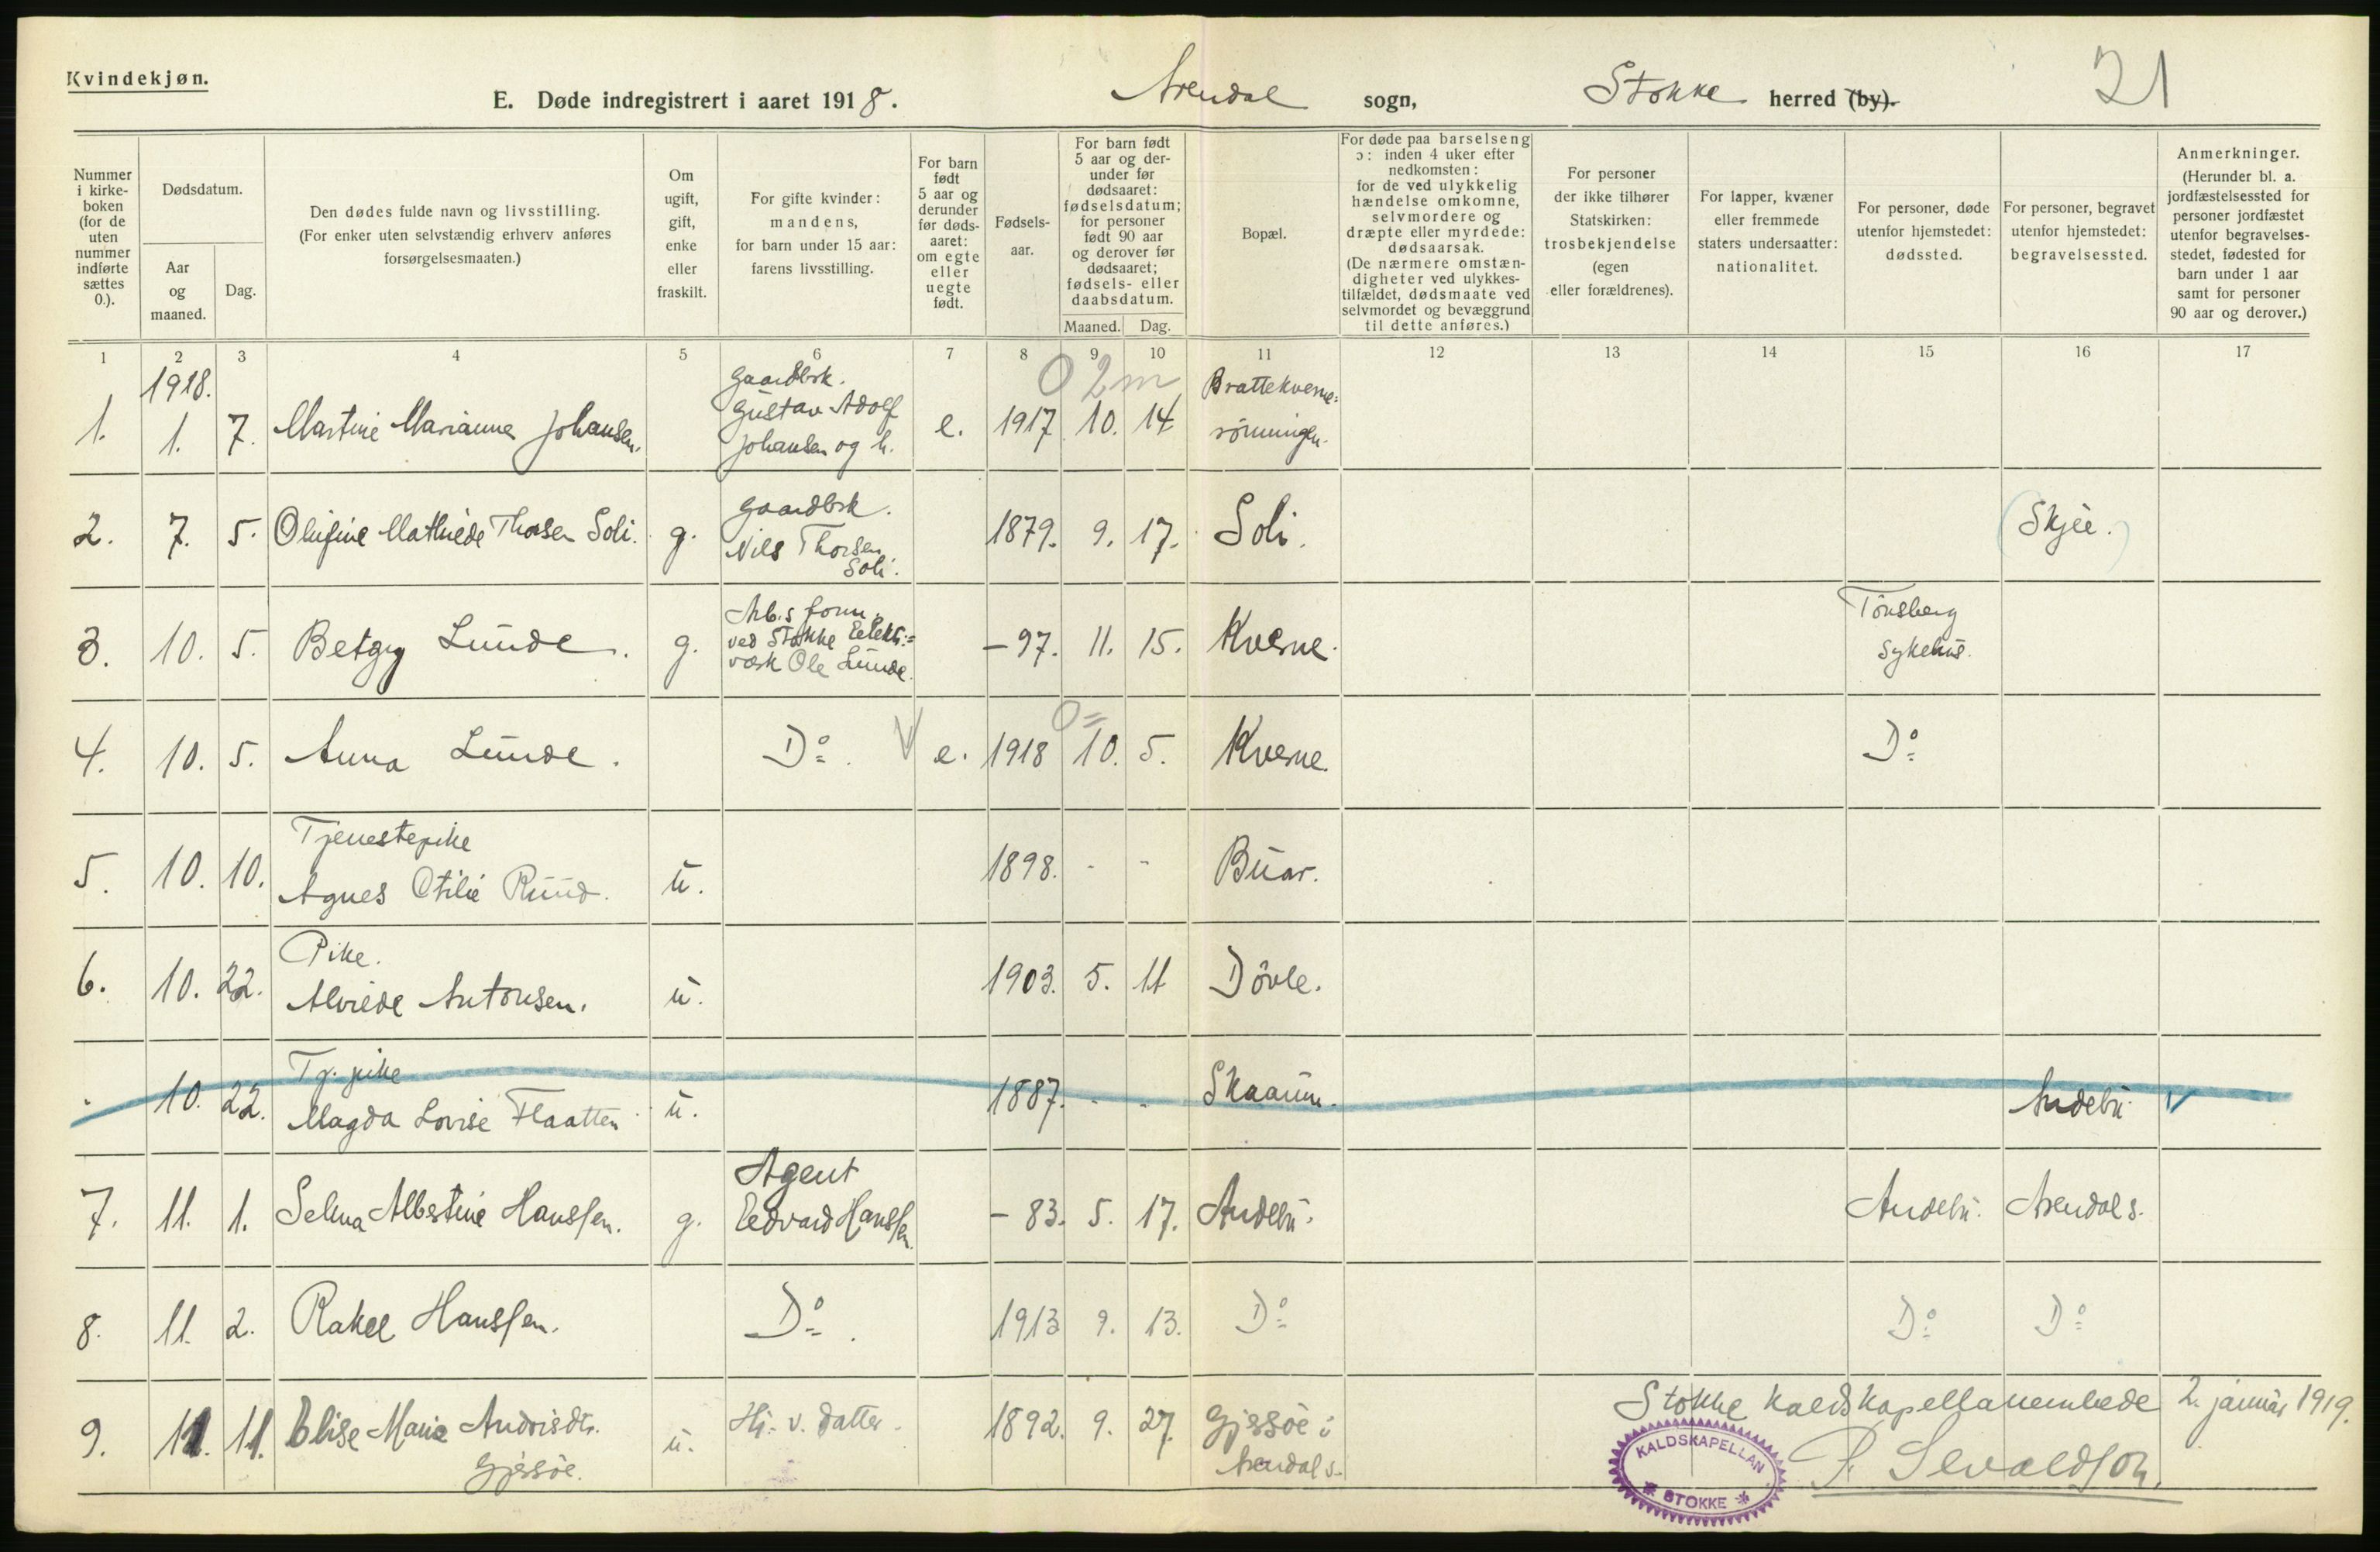 Kvindekjøn.
E. Døde indregistrert i aaret 1918. Arendal sogn, Stokke herred (by).
21
Nummer i kirkeboken (for de uten nummer indførte sættes 0.).
Dødsdatum.
Aar og maaned.
Dag.
Den dødes fulde navn og livsstilling.
(For enker uten selvstændig erhverv anføres forsørgelsesmaaten.)
Om ugift, gift, enke eller fraskilt.
For gifte kvinder: mandens, for barn under 15 aar: farens livsstilling.
For barn født 5 aar og derunder før dødsaaret: om egte eller uegte født.
Fødselsaar.
For barn født 5 aar og derunder før dødsaaret: fødselsdatum; for personer født 90 aar og derover før dødsaaret; fødsels- eller daabsdatum.
Maaned. Dag.
Bopæl.
For døde paa barselseng ɔ: inden 4 uker efter nedkomsten: for de ved ulykkelig hændelse omkomne, selvmordere og dræpte eller myrdede: dødsaarsak.
(De nærmere omstændigheter ved ulykkestilfældet, dødsmaate ved selvmordet og bevæggrund til dette anføres.)
For personer der ikke tilhører Statskirken: trosbekjendelse (egen eller forældrenes).
For lapper, kvæner eller fremmede staters undersaatter: nationalitet.
For personer, døde utenfor hjemstedet: dødssted.
For personer, begravet utenfor hjemstedet: begravelsessted.
Anmerkninger.
(Herunder bl. a. jordfæstelsessted for personer jordfæstet utenfor begravelsesstedet, fødested for barn under 1 aar samt for personer 90 aar og derover.)
1 2 3 4 5 6 7 8 9 10 11 12 13 14 15 16 17
1918.
0 2 m
1. 1. 7. Martine Marianne Johansen. Gaardbrk. Gustav Adolf Johansen og h. e. 1917 10. 14 Brattekverne=rönningen.
2. 7. 5. Olufine Mathilde Thorsen Soli. g. Gaardbrk. Nils Thorsen Soli. 1879. 9. 17. Soli. (Skjee.)
3. 10. 5. Betzy Lunde. g. Arb.s form. ved Stokke Elektr.=verk Ole Lunde. -97. 11. 15. Kverne. Tönsberg Sykehus.
0=
4. 10. 5. Anna Lunde. Do. V e. 1918 10. 5. Kverne. Do
5. 10. 10. Tjenestepike Agnes Otilie Ruud. u. 1898. - - Buar.
6. 10. 22. Pike. Alvilde Antonsen. u. 1903. 5. 11 Dövle.
10. 22. Tj. pike Magda Lovise Flaatten u. 1887. - - Skaaum. Andebu. V
7. 11. 1. Selma Albertine Hanssen. g. Agent Edvard Hanssen. - 83. 5. 17. Andebu. Andebu. Arendal s.
8. 11. 2. Rakel Hanssen. Do. 1913 9. 13. Do Do Do
9. 11. 11. Elise Marie Andrisdtr. Gjersöe. u. Hj. v. datter. 1892. 9. 27. Gjersöe i Arendal s.
Stokke Kaldskapellanembede 2. januar 1919.
P. Sevaldson.
KALDSKAPELLAN
* STOKKE *